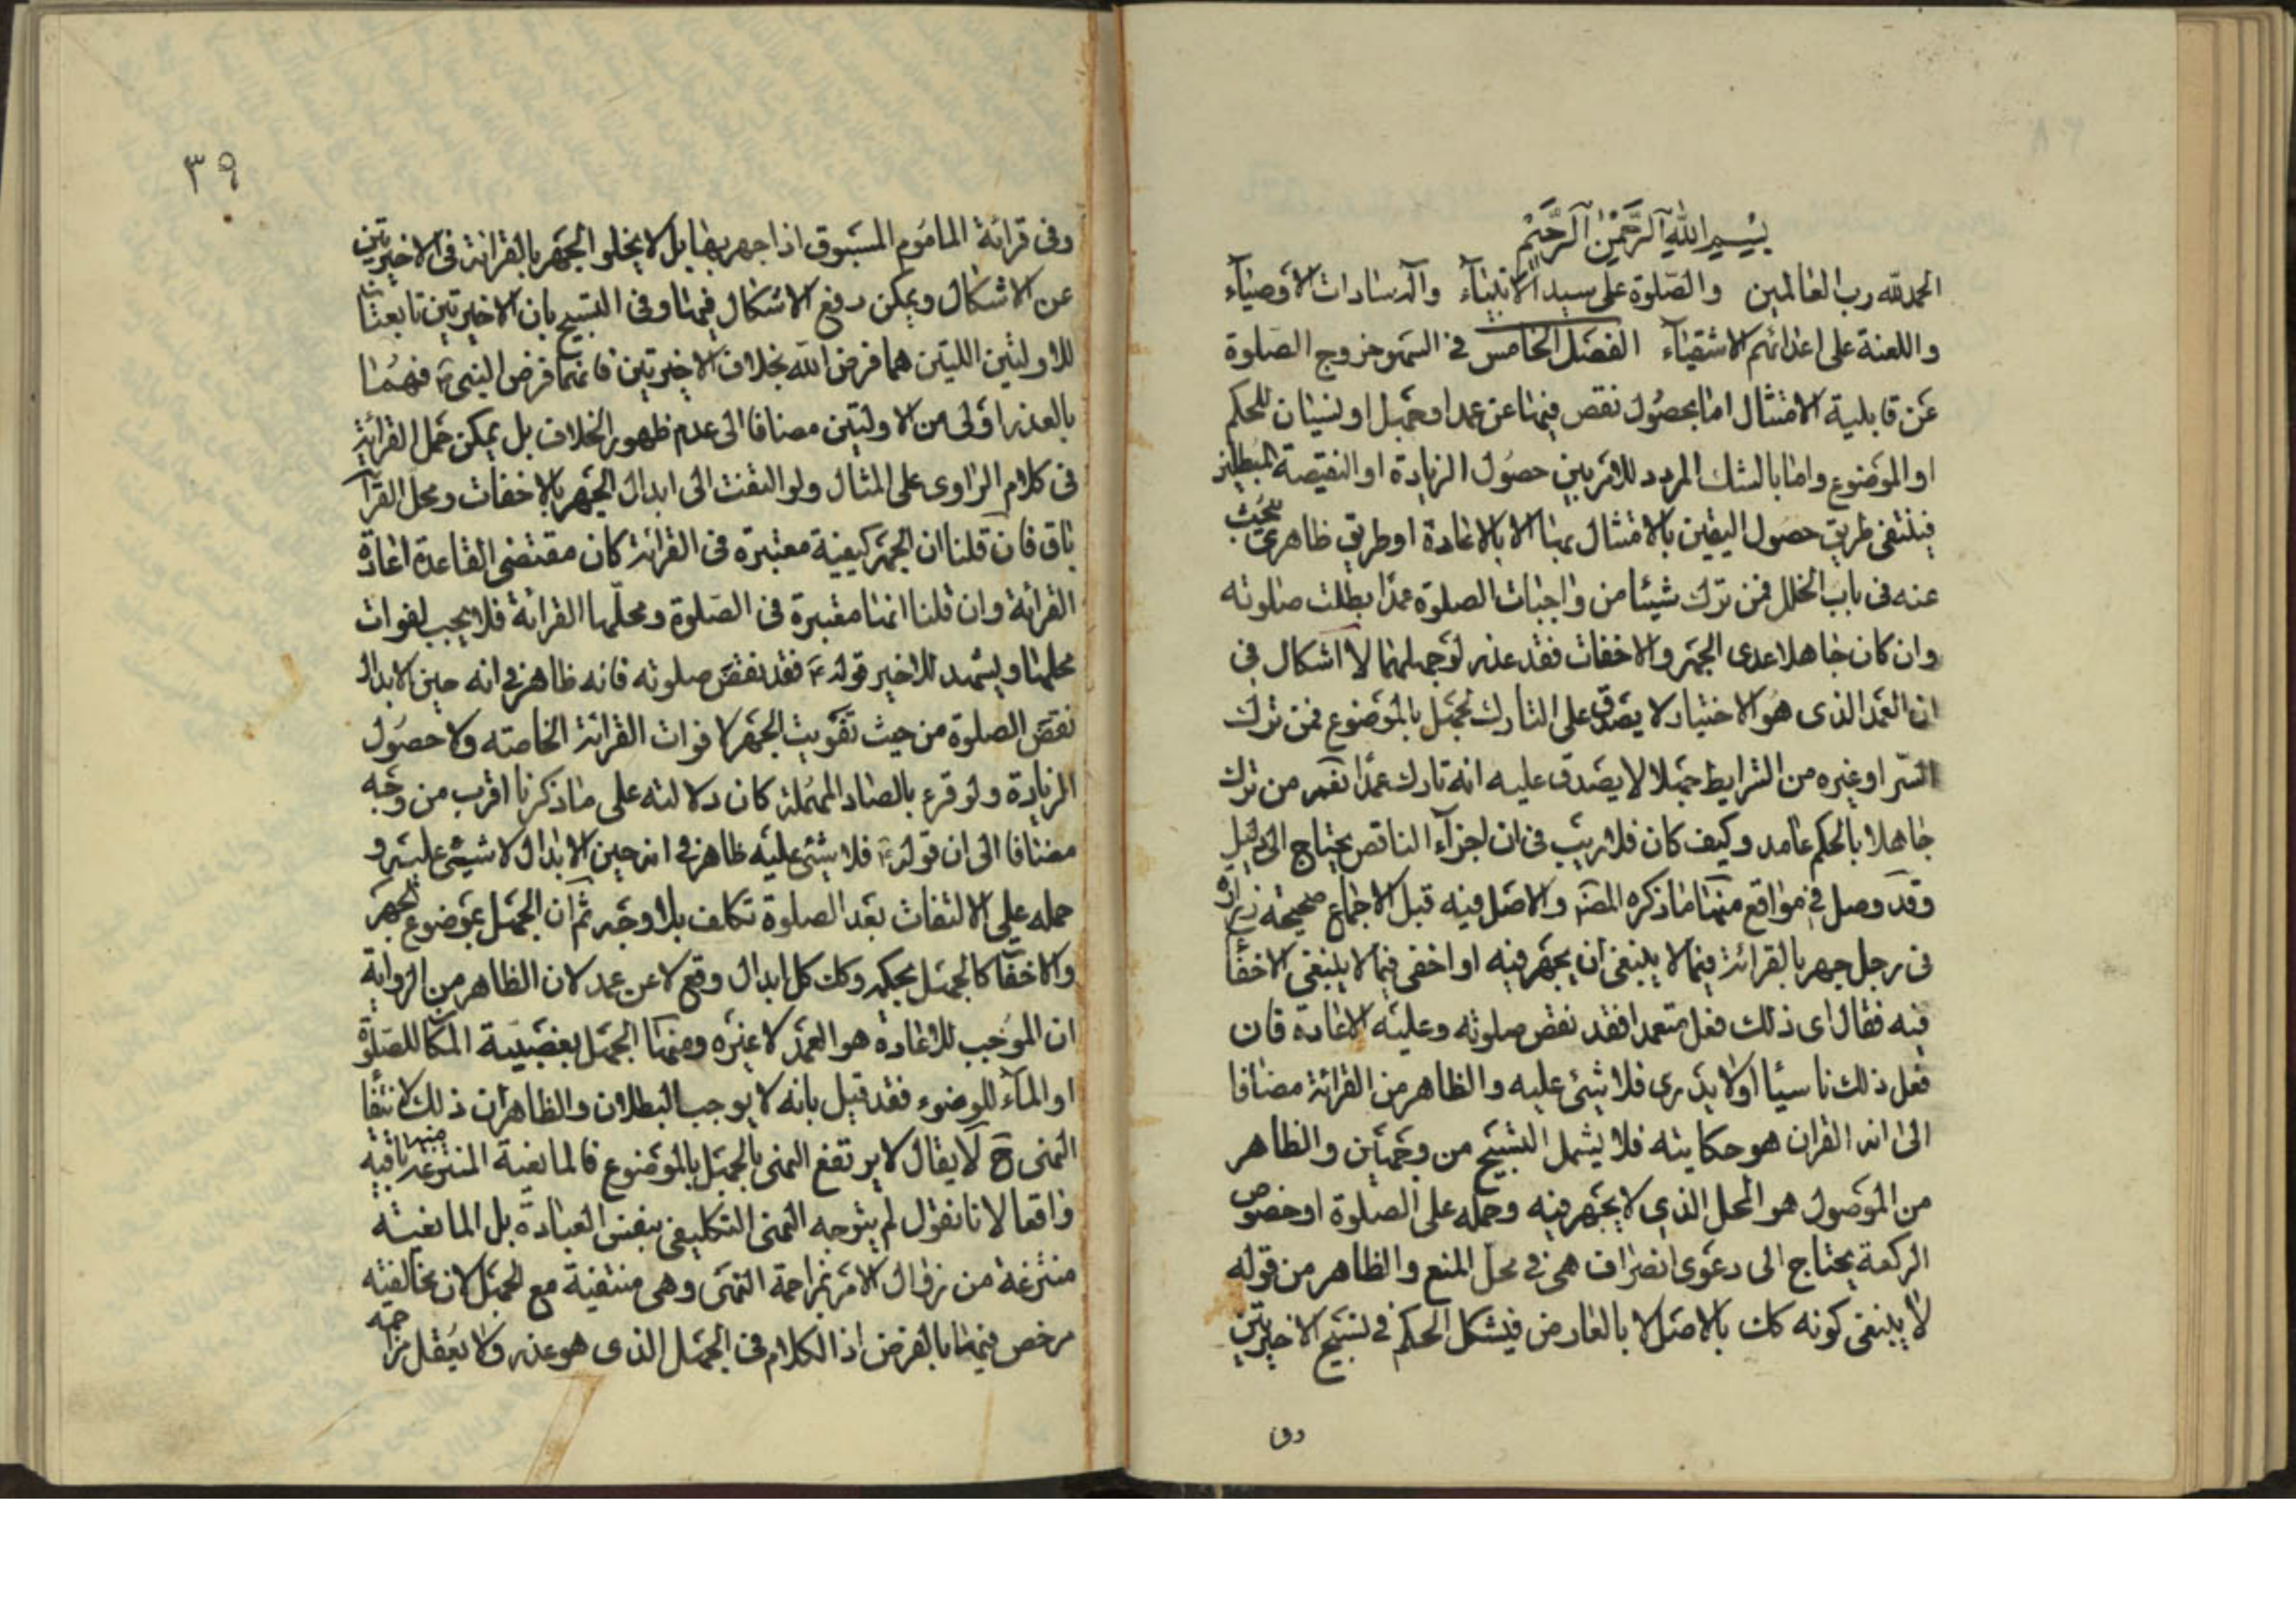 بسم الله الرحمن الرحيم
الحمد لله رب العالمين والصلوة على سيد الانبياء وآله سادات الاوصياء
واللعنة على اعدائهم الاشقياء الفصل الخامس في السهو خروج الصلوة
عن قابلية الامتثال اما بحصول نقص فيها عن عمد او جهل او نسيان للحكم
او الموضوع واما بالشك المردد للامر بين حصول الزيادة او النقيصة المبطلين
فينتفى طريق حصول اليقين بالامتثال بها الا بالاعادة او طريق ظاهرى يبحث
عنه فى باب الخلل فمن ترك شيئا من واجبات الصلوة عمدا بطلت صلوته
وان كان جاهلا عدى الجهر والاخفات فقد عذر لو جهلهما لا اشكال في
ان العمد الذى هو الاختيار لا يصدق على التارك لجهل بالموضوع فمن ترك
الستر او غيره من الشرايط جهلا لا يصدق عليه انه تارك عمدا نعم من ترك
جاهلا بالحكم عامد وكيف كان فلا ريب فى ان اجزاء الناقص يحتاج الى دليل
وقد وصل في مواقع منها ما ذكره المصنف والاصل فيه قبل الاجماع صحيحة زرارة
فى رجل جهر بالقرائة فيما لا ينبغى ان يجهر فيه او اخفى فيما لا ينبغى الاخفا
فيه فقال اى ذلك فعل متعمدا فقد نقض صلوته وعليه الاعادة فان
فعل ذلك ناسيا او لا يدرى فلا شئ عليه والظاهر من القرائة مضافا
الى انه القران هو حكايته فلا يشمل التسبيح من وجهين والظاهر
من الموصول هو المحل الذي لا يجهر فيه وحمله على الصلوة او خصوص
الركعة يحتاج الى دعوى انصراف هى في محل المنع والظاهر من قوله
لا ينبغى كونه كك بالاصل لا بالعارض فيشكل الحكم في تسبيح الاخيرتين
وفى
٣٩
وفى قرائة الماموم المسبوق اذا جهر بها بل لا يخلو الجهر بالقرائة فى الاخيرتين
عن الاشكال ويمكن رفع الاشكال فيها وفى التسبيح بان الاخيرتين تابعتان
للاولتين اللتين هما فرض الله بخلاف الاخيرتين فانهما فرض النبى ص فهما
بالعذر اولى من الاولتين مضافا الى عدم ظهور الخلاف بل يمكن حمل القرائة
فى كلام الراوى على المثال ولو التفت الى ابدال الجهر بالاخفات ومحل القرآ
باق فان قلنا ان الجهر كيفية معتبرة فى القرائة كان مقتضى القاعدة اعادة
القرائة وان قلنا انها معتبرة فى الصلوة ومحلها القرائة فلا يجب لفوات
محلها ويشهد للاخير قوله ع فقد نقض صلوته فانه ظاهر في انه حين الابدال
نقض الصلوة من حيث تفويت الجهر لا فوات القرائة الخاصته ولا حصول
الزيادة ولو قرء بالصاد المهملة كان دلالته على ما ذكرنا اقرب من وجه
مضافا الى ان قوله ع فلا شئ عليه ظاهر في انه حين الابدال لا شيئى عليه و
حمله على الالتفات بعد الصلوة تكلف بلا وجه ثم ان الجهل بموضوع الجهر
والاخفا كالجهل بحكمه وكك كل ابدال وقع لا عن عمد لان الظاهر من الرواية
ان الموجب للاعادة هو العمد لا غيره ومنها الجهل بغصبية المكا للصلوة
او الماء للوضوء فقد قيل بانه لا يوجب البطلان والظاهر ان ذلك لانتفا
النهى ح لا يقال لا يرتفع النهى بالجهل بالموضوع فالمانعية المنتزعة منها باقية
واقعا لانا نقول لم يتوجه النهى التكليفى بنفس العبادة بل المانعية
منتزعة من زوال الامر بمزاحمة النهى وهى منتفية مع الجهل لان مخالفته
مرخص فيها بالفرض اذ الكلام فى الجهل الذى هو عذر ولا يعقل مزاحمة